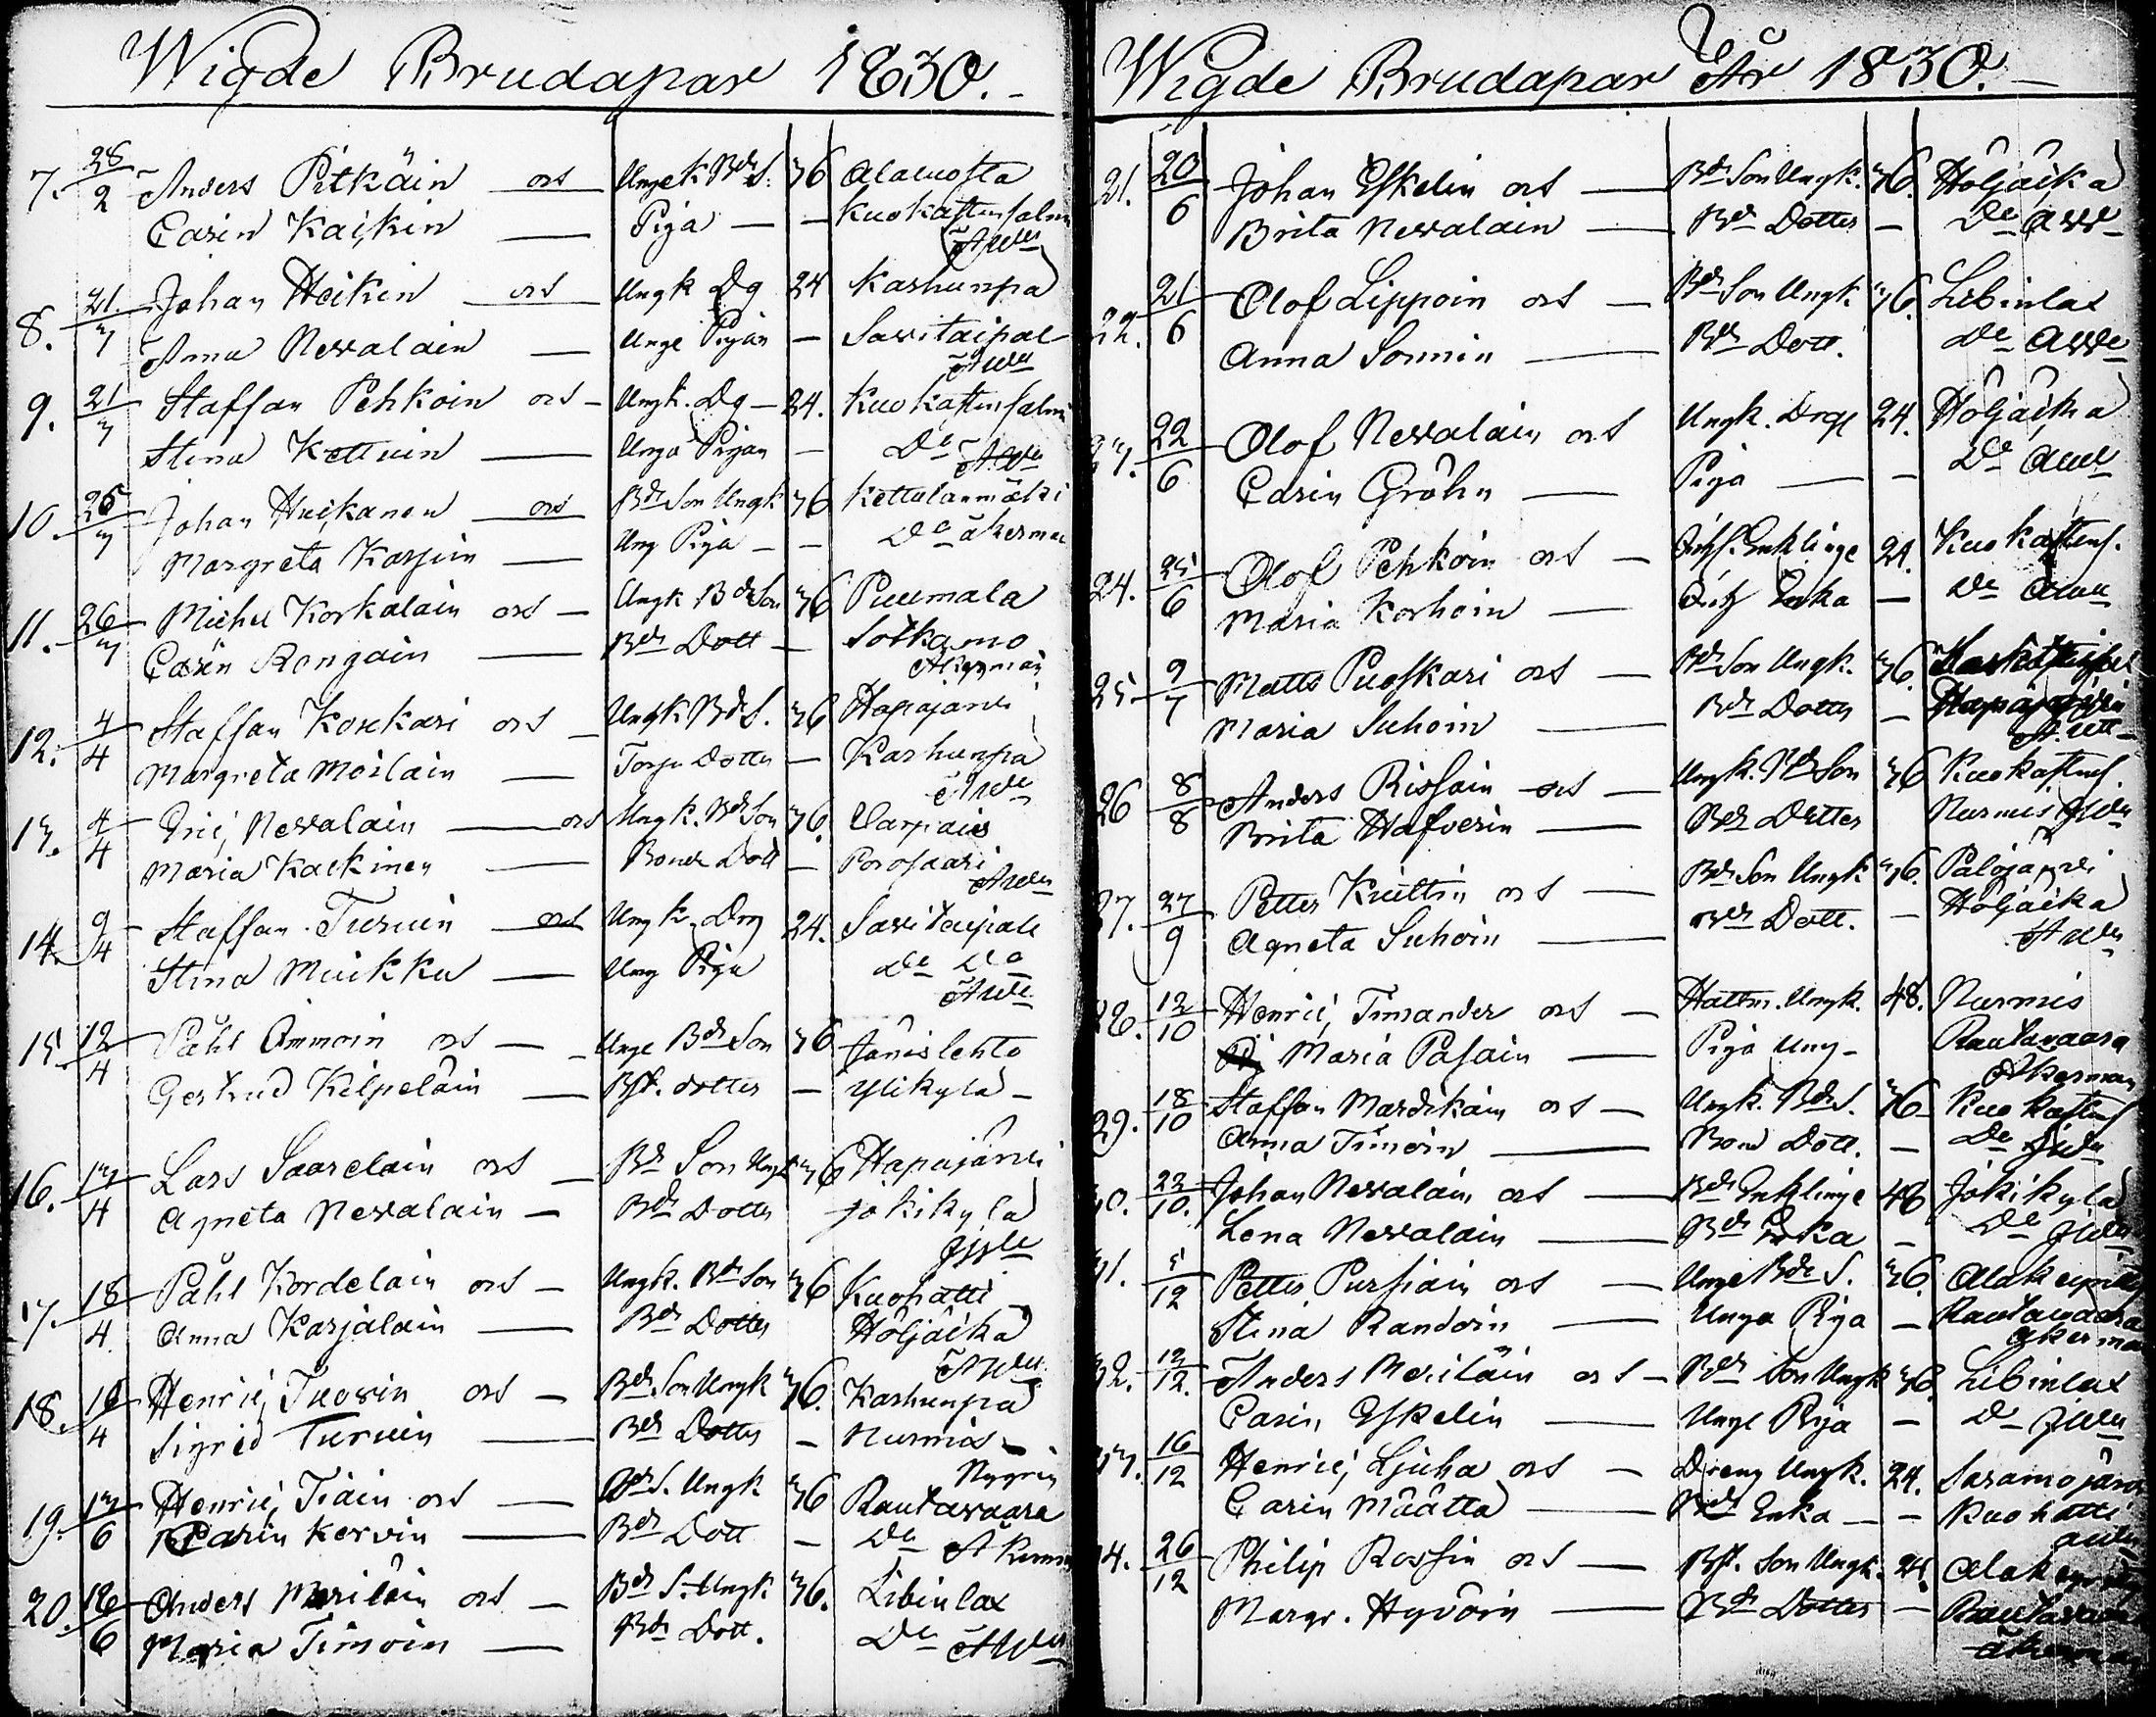 Wigde Brudapar 1830.
7. 28/2 Anders Pitkäin och Ungk Bde S. 36 Alaluosta
Carin Kaikin — Piga — Kuokastensalm
8. 21/3 Johan Heikin och Ungk Dg 24 Karhunpä
Anna Nevalain — Unge Pigan — Savitaipal
9. 21/3 Staffan Pehkoin och Ungk. Dg — 24. Kuokastensalmi
Stina Kettuin — Unga Pigan — De
10. 25/3 Johan Heikanen och Bde Son Ungk 36 Kettulanmäki
Margreta Karjin — Ung Piga — De Åkerman
11. 26/3 Michel Korkalain och — Ungk Bde Son 36 Puumala
Carin Rongain — Bde Dott — Sotkamo
Åkerman
12. 4/4 Staffan Koukari och — Ungk Bde S. 36 Hapajärvi
Margreta Moilain — Torp Dotter — Karhunpä
13. 4/4 Eric Nevalain — och Ungk. Bde Son 36.
Maria Kaikinen — Bonde Dott — Porosaari
14. 9/4 Staffan Turuin — och Ungk. Drg 24. Savitaipale
Stina Muikku — Ung Piga De Do
15. 12/4 Påhl Ammoin och — Unge Bde Son 36 Jänislehto
Gertrud Kilpeläin — Bst. dotter — Ylikylä —
16. 13/4 Lars Saarelain och — Bde Son Ungk 36 Hapajärvi
Agneta Nevalain — Bde Dotter Jokikylä
17. 18/4 Påhl Kordelain och — Ungk. Bde Son 36 Kuohatti
Anna Karjalain — Bde Dotter Höljäikä
18. 18/4 Henric Tuovin och — Bde Son Ungk 36. Karhunpä
Sigrid Turuin — Bde Dotter — Nurmis
Nygrén
19. 13/6 Henric Tiain och — Bde S. Ungk 36 Rautavaara
Carin Kervin — Bde Dott — De Åkerman
20. 18/6 Anders Meriläin och — Bde S. Ungk 36. Libinlax
Maria Timoin — Bde Dott. De
Wigde Brudapar År 1830.
21. 20/6 Johan Eskelin och — Bde Son Ungk. 36. Höljäikä
Brita Nevalain — Bde Dotter — De
22. 21/6 Olof Lippoin och — Bde Son Ungk 36. Libinlax
Anna Sormin — Bde Dott. De
23. 22/6 Olof Nevalain och Ungk. Dreg 24. Höljäikä
Carin Gröhn — Piga — De
24. 25/6 Olof Pehkoin och — Enklinge 24. Kuokastens.
Maria Korhoin — Enka — De
25. 9/7 Matts Puoskari och — Bde Son Ungk. 36.
Maria Suhoin — Bde Dotter — Hapajärvi
26 8/8 Anders Rissain och — Ungk. Bde Son 36 Kuokastens.
Brita Hafverin — Bde Dotter Nurmis
27. 27/9 Petter Kiiltin och — Bde Son Ungk 36. Palojärvi
Agneta Suhoin — Bde Dott. — Höljäikä
28. 12/10 Henric Timander och — Ungk. 48. Nurmis
Maria Pasain — Piga Ung — Rautavaara
Åkerman
29. 18/10 Staffan Mardikain och — Ungk. Bde S. 36 Kuokastens
Anna Timoin — Bond Dott. — De
30. 22/10. Johan Nevalain och — Bde Enklinge 48 Jokikylä
Lena Nevalain — Bde Enka — De
31. 5/12 Petter Pursiain och — Unge Bde S. 36. Alakeyritty
Stina Randoin — Unga Piga — Rautavaara
Åkerman
32. 12/12. Anders Meriläin och — Bde Son Ungk 36 Libinlax
Carin Eskelin — Unge Piga — De
33. 16/12 Henric Ljuha och — Dreng Ungk. 24. Saramojärvi
Carin Määttä — Bde Enka — Kuohatti
34. 26/12 Philip Rossin och — Bst. Son Ungk. 24. Alakeyritty
Margr. Hyvöin — Bde Dotter — Rautavaara
Åkerman